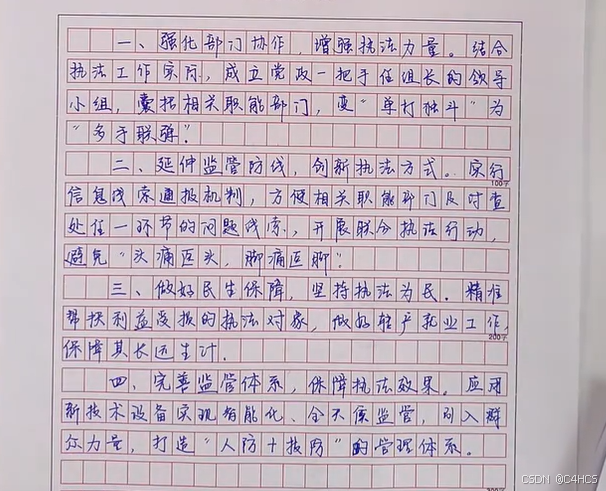 一、强化部门协作，增强执法力量。结合
执法工作实际，成立党政一把手任组长的领导
小组，囊括相关职能部门，变“单打独斗”为
“多手联弹”。
二、延伸监管防线，创新执法方式。实行
100字
信息线索通报机制，方便相关职能部门及时查
处任一环节的问题线索，开展联合执法行动，
避免“头痛医头，脚痛医脚”。
三、做好民生保障，坚持执法为民。精准
帮扶利益受损的执法对象，做好转产就业工作，
200字
保障其长远生计。
四、完善监管体系，保障执法效果。应用
新技术设备实现智能化、全天候监管，引入群
众力量，打造“人防+技防”的管理体系。
300字
CSDN @C4HCS